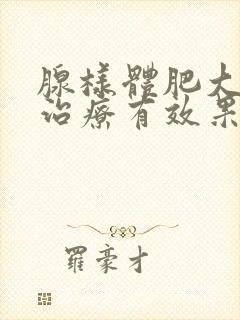 腺樣體肥大
治療有效果
羅豪才